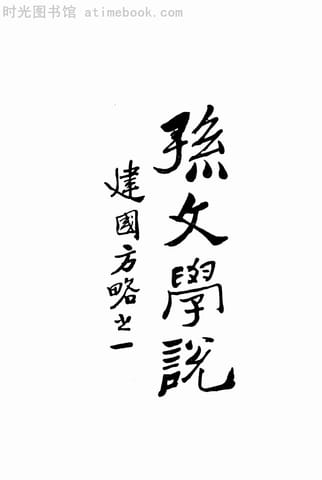 时光图书馆 atimebook.com
孫文學說
建國方略之一